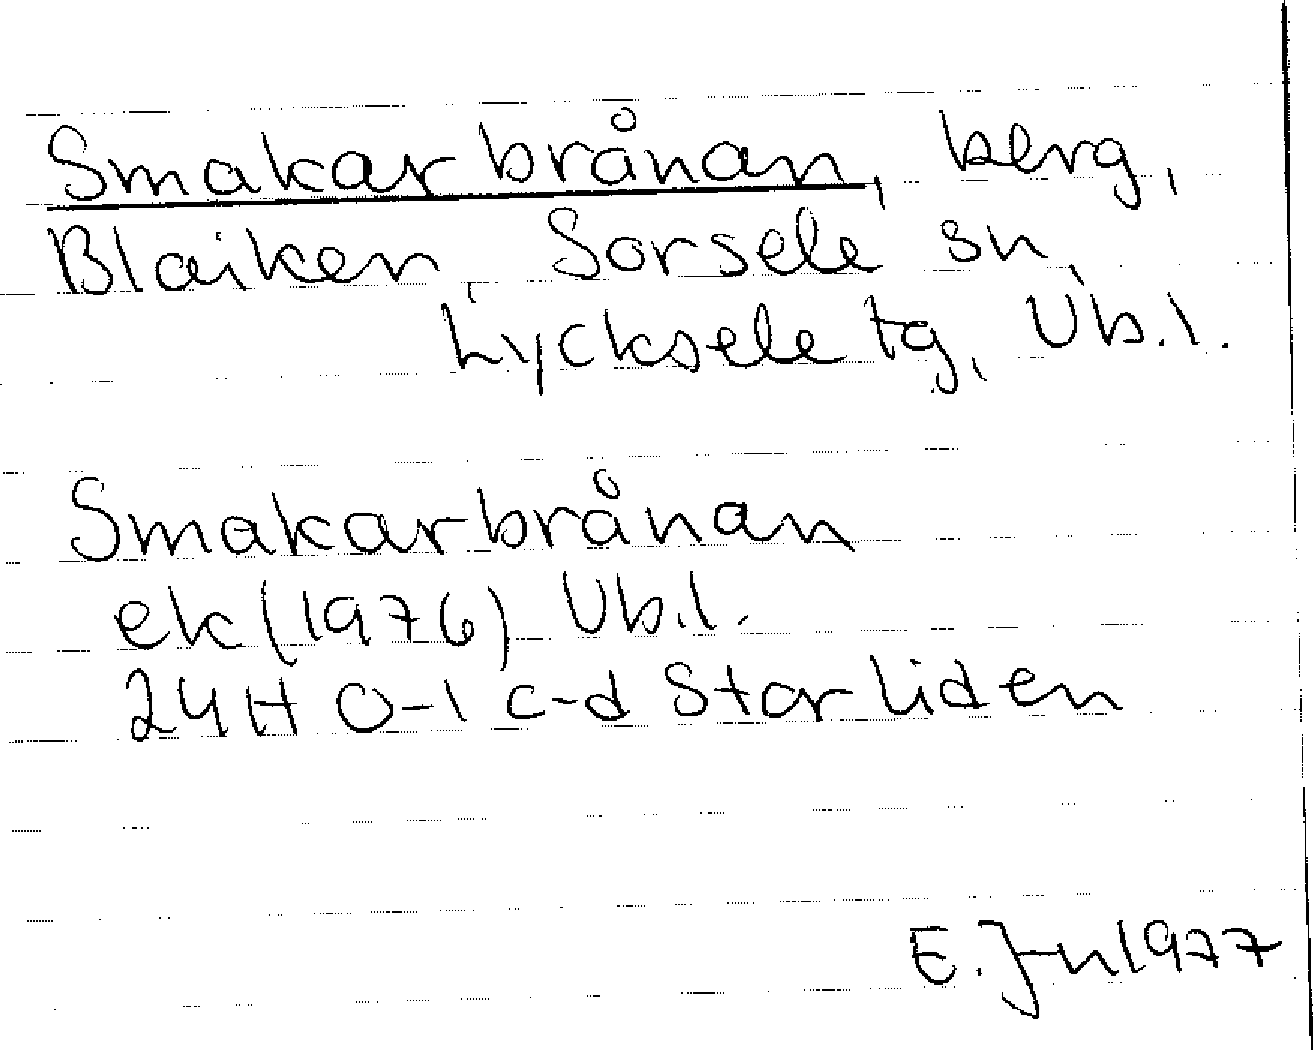 Smakarbrånan, berg,
Blaiken, Sorsele sn,
Lycksele tg, Vb.l.
Smakarbrånan
ek (1976) Vb.l.
24H 0-1 c-d Storliden
E. J-n 1977